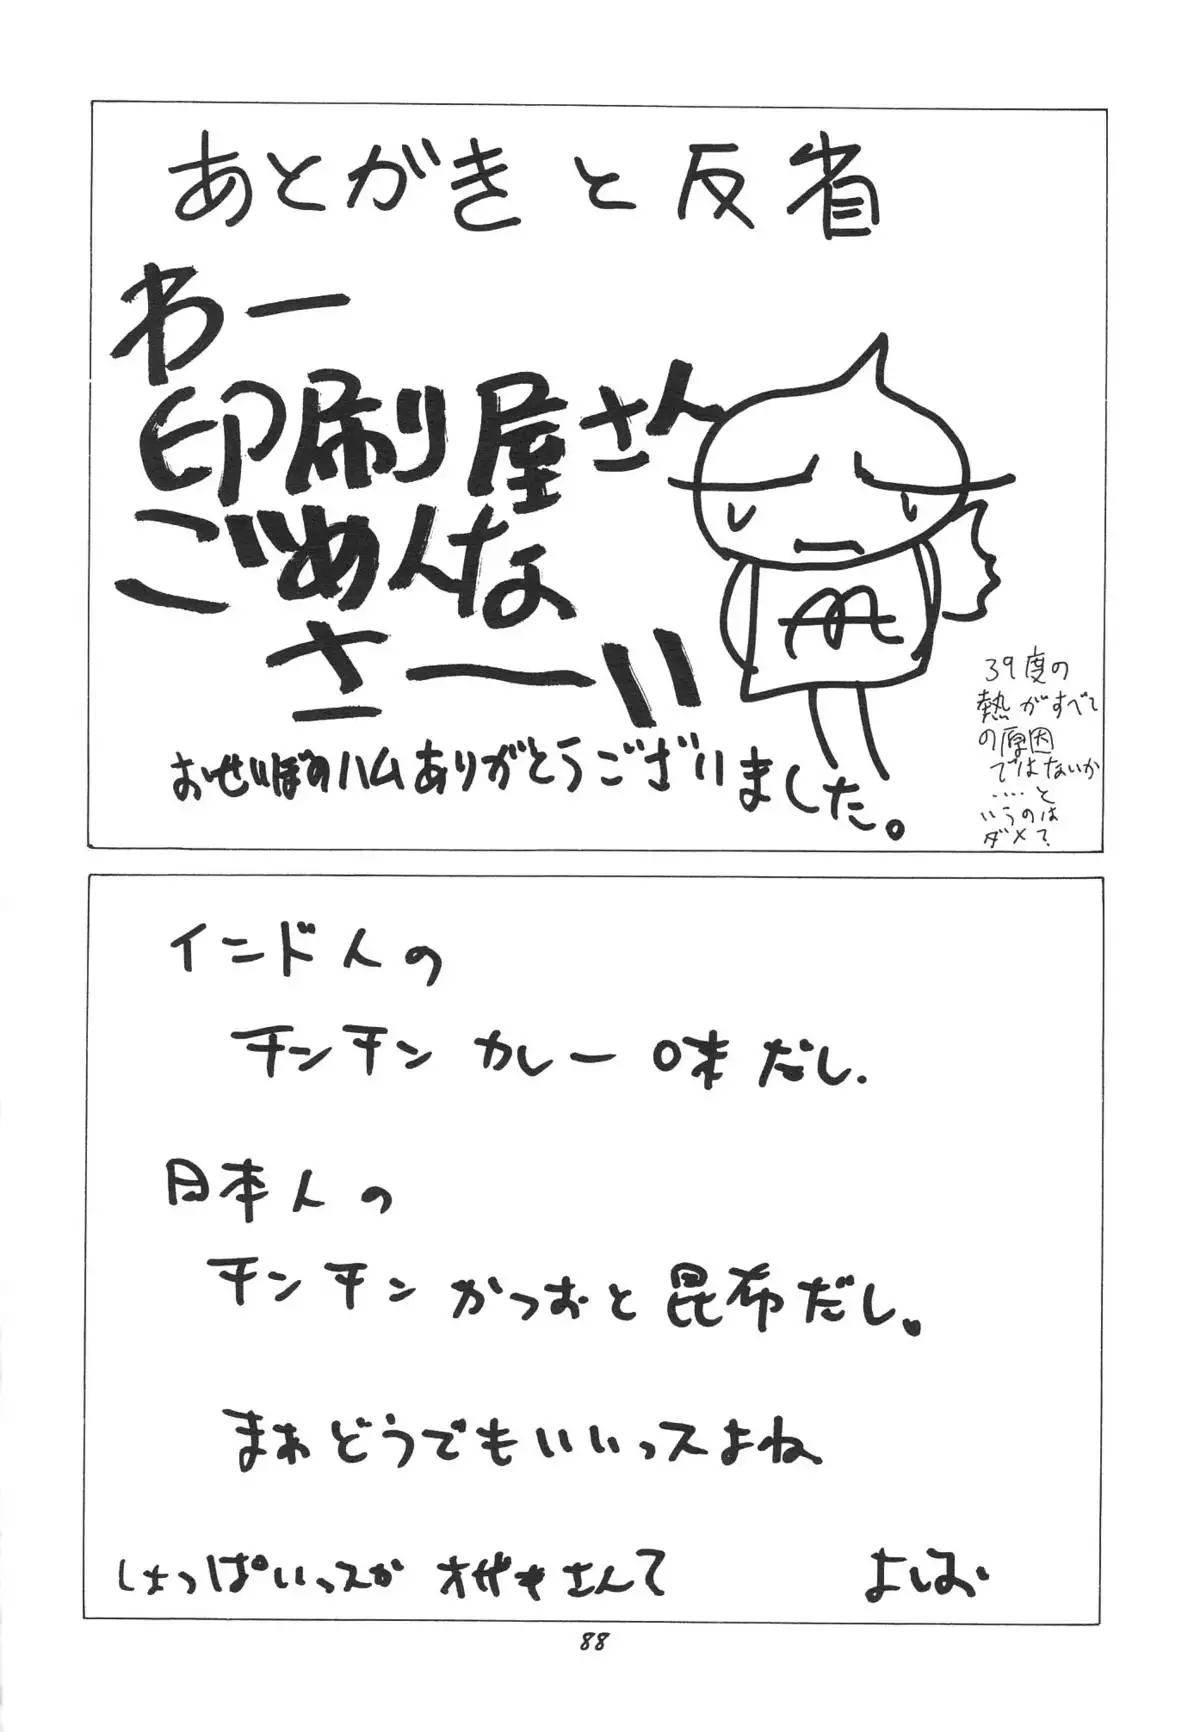 あとがきと反省
わー
印刷屋さん
ごめんな
さーい
おせいぼのハムありがとうございました。
39度の
熱がすべて
の原因
ではないか
‥‥と
いうのは
ダメで?
インド人の
チンチン カレー味だし.
日本人の
チンチン かつおと昆布だし。
まぁどうでもいいっスよね
しょっぱいっスか オザキさんて
よしお
88